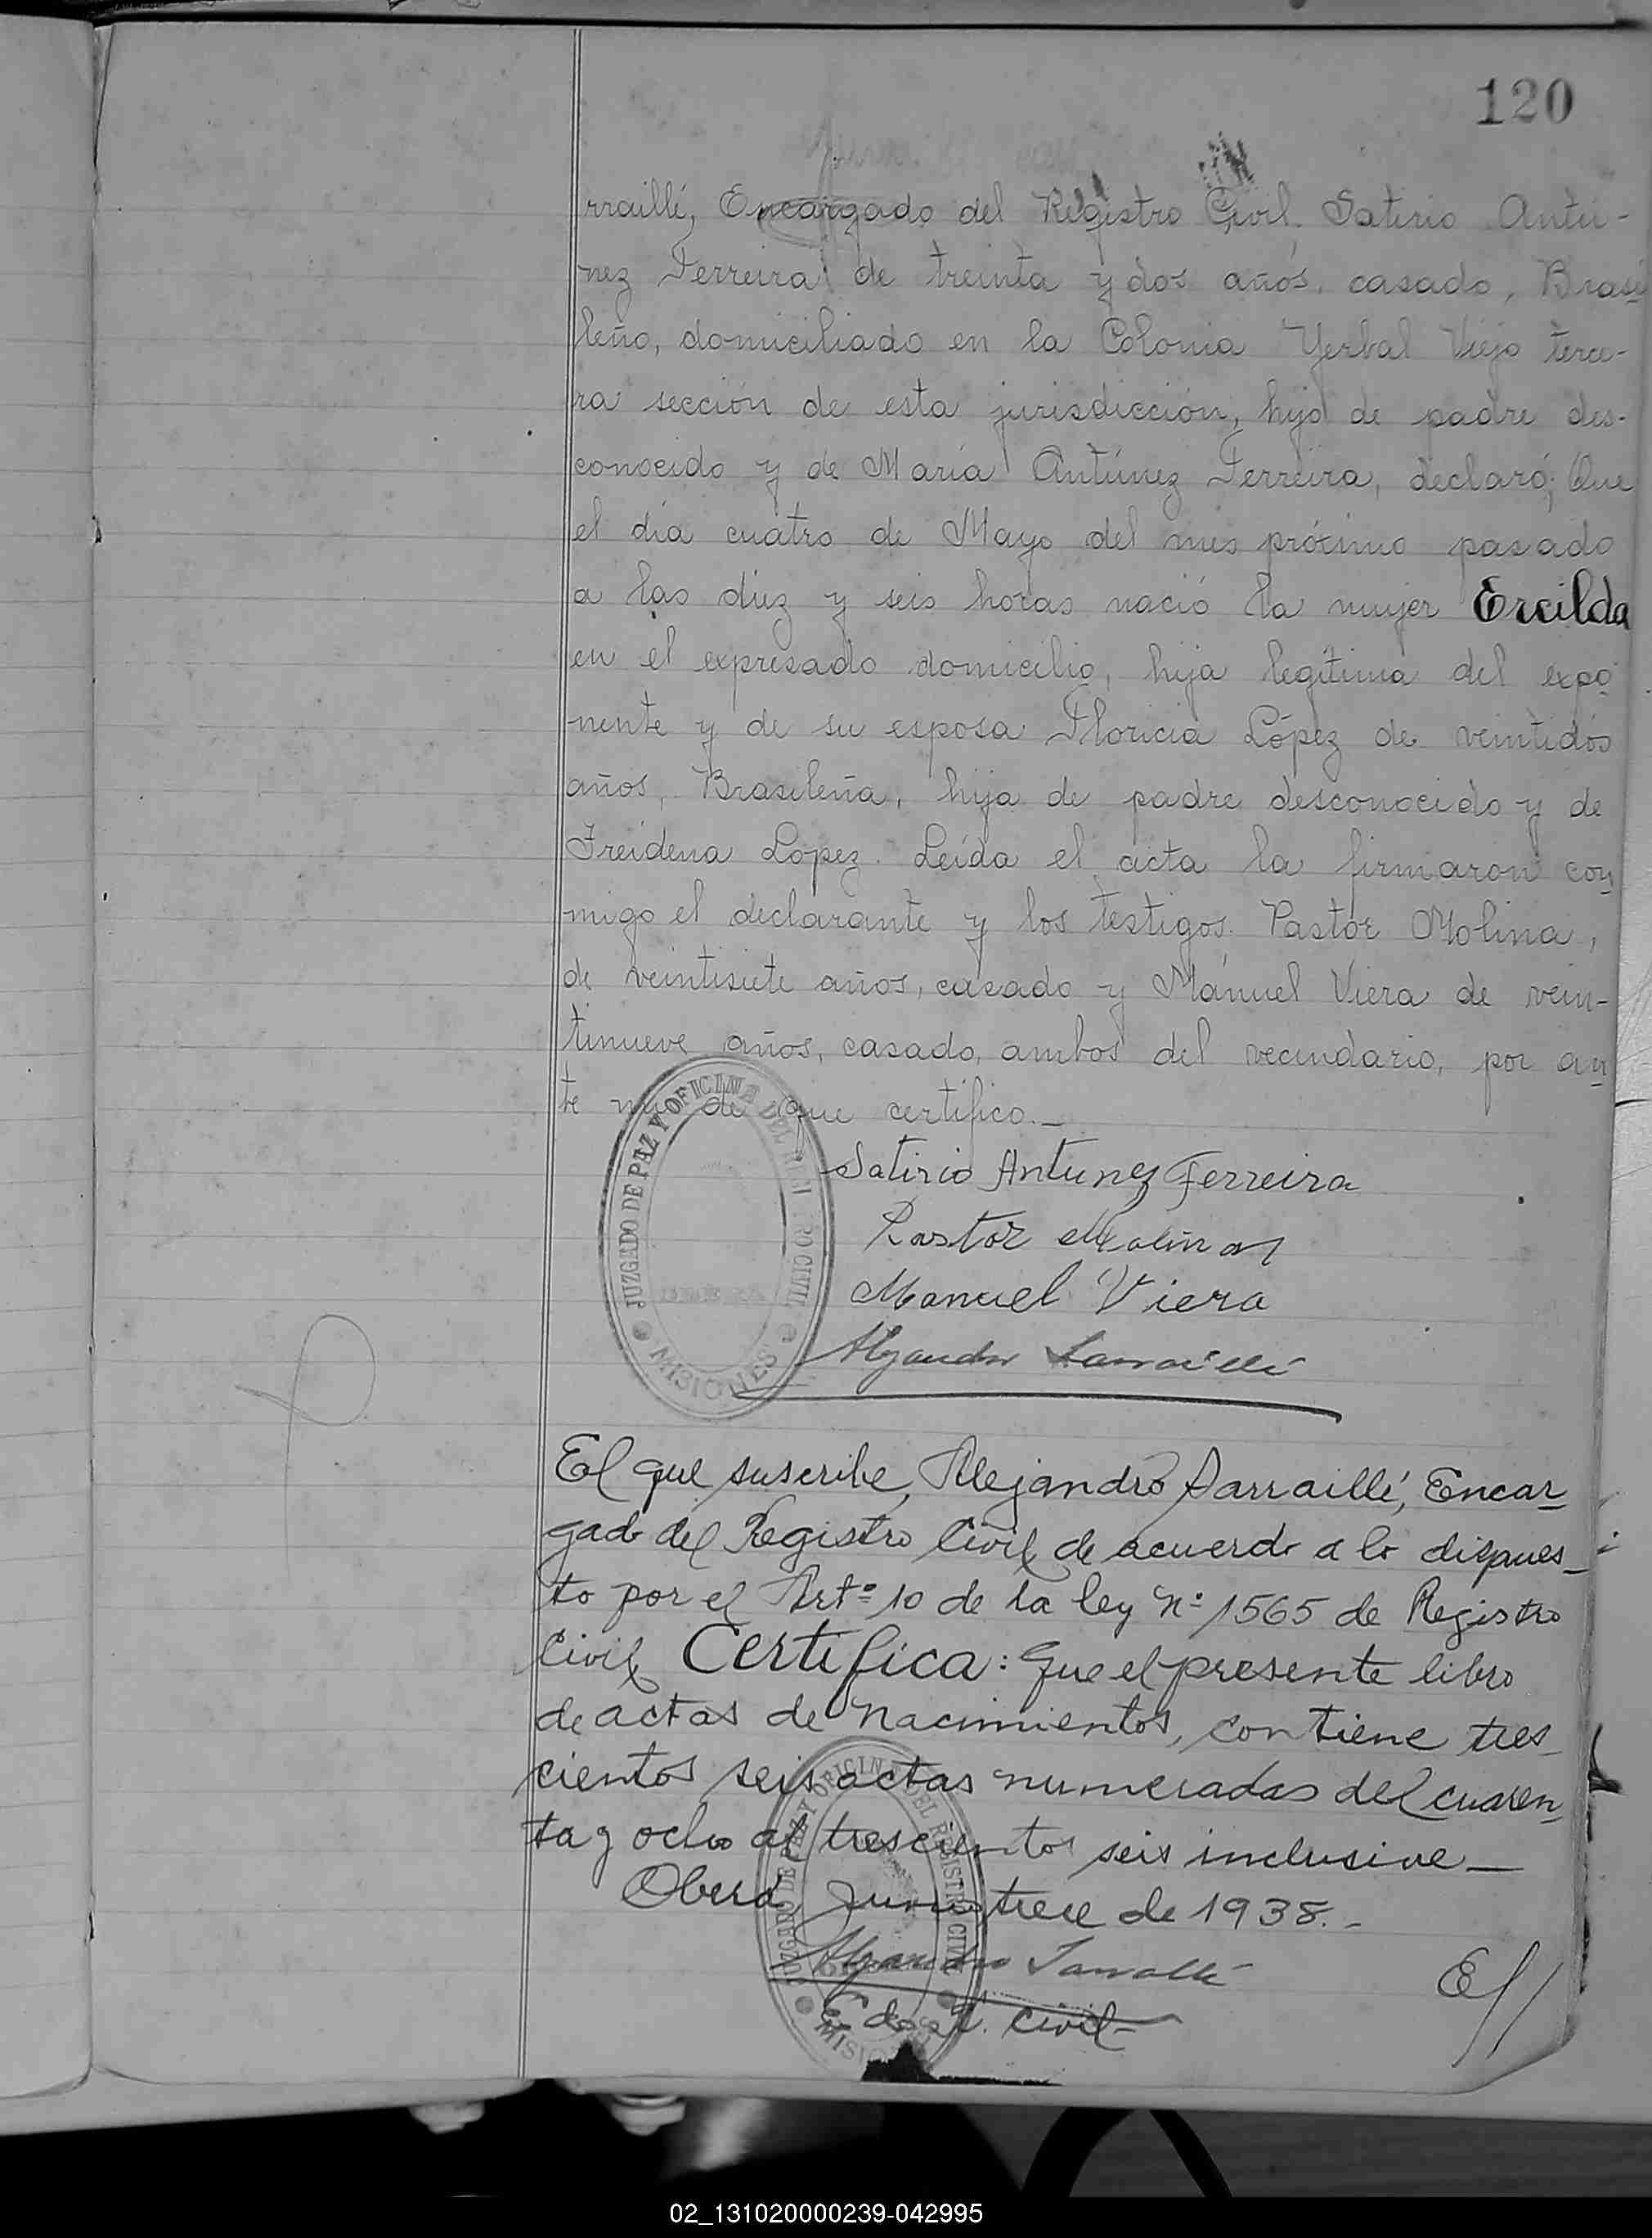 120
rraillé, Encargado del Registro Civil. Satirio Antú-
nez Ferreira de treinta y dos años. casado, Brasi
leño, domiciliado en la Colonia Yerbal Viejo terce-
ra sección de esta jurisdicción, hijo de padre des-
conocido y de María Antúnez Ferreira, declaró; Que
el día cuatro de Mayo del mes próximo pasado
a las diez y seis horas nació la mujer Ercilda
en el expresado domicilio, hija legítima del expo
nente y de su esposa Floricia López de veintidós
años, Brasileña, hija de padre desconocido y de
Freidena López. Leída el acta la firmaron con
migo el declarante y los testigos. Pastor Molina,
de veintisiete años, casado y Mánuel Viera de vein-
tinueve años, casado, ambos del vecindario, por an
te mi de que certifico.—
JUZGADO DE PAZ Y OFICINA DEL REGISTRO CIVIL
MISIONES
Satirio Antunez Ferreira
Pastor Molina
Manuel Viera
Alejandro Larraillé
El que suscribe, Alejandro Larraillé, Encar
gado del Registro Civil de acuerdo a lo dispues_
to por el Artº 10 de la ley Nº 1565 de Registro
Civil Certifica: Que el presente libro
de actas de nacimientos, contiene tres_
cientos seis actas numeradas del cuaren
ta y ocho al trescientos seis inclusive—
Oberá Junio trece de 1938.-
Alejandro Larraillé
E. do R. Civil-
JUZGADO DE PAZ Y OFICINA DEL REGISTRO CIVIL
MISIONES
02_131020000239-042995